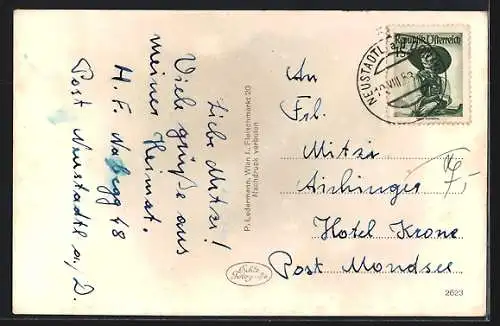 Liebe Mitzi!
Viele grüße aus
meiner Heimat.
H. F. Nabegg 48
Post Neustadtl a/D.
P. Ledermann, Wien I., Fleischmarkt 20
Nachdruck verboten
An
Frl.
Mitzi
Aichinger
Hotel Krone
Post Mondsee
Republik Österreich
NEUSTADTL a.D.
VIII 53
7,-
Echte
Fotografie
2623